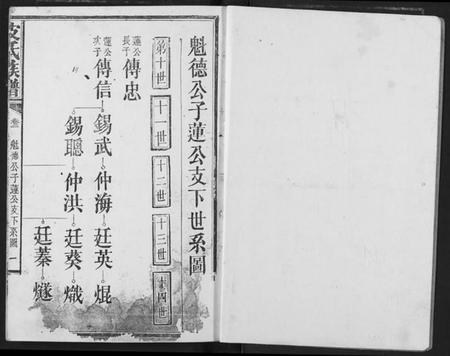 魁德公子蓮公支下世系圖
第十世 十一世 十二世 十三世 十四世
蓮公長子 傳忠
蓮公次子 傳信 錫武 仲海 廷英 焜
錫聰 仲洪 廷葵 熾
廷蓁 燧
氏族譜 魁德公子蓮公支下系圖 一